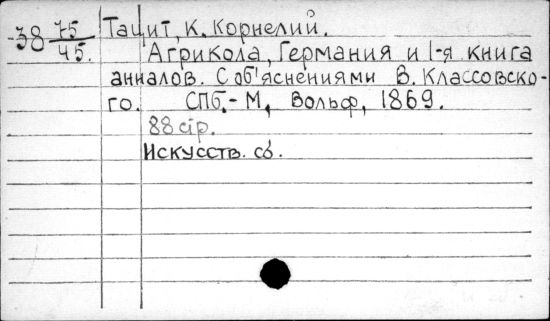 38 75/45. Тацит, К. Корнелий.
Агрикола, Германия и 1-я книга
анналов. С об'яснениями В. Классовско-
го. СПб.-М, Вольф, 1869.
88 стр.
Искусств. сб.